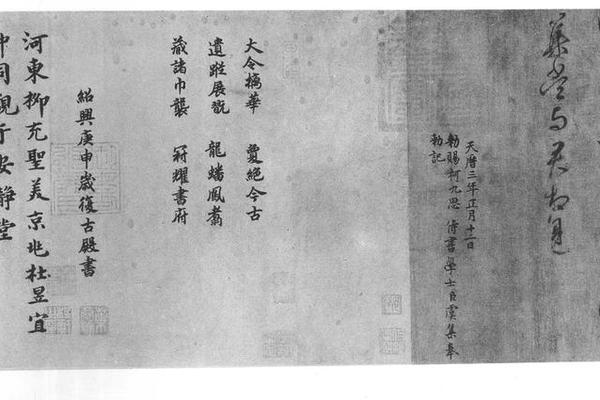 集當与君相見
天曆三年正月十二日
勅賜柯九思 侍書學士臣虞集奉
勅記
大令摛華 夐絕今古
遺蹤展翫 龍蟠鳳翥
藏諸巾襲 冠耀書府
紹興庚申歲復古殿書
河東柳充聖美京兆杜昱宜
中同觀于安靜堂